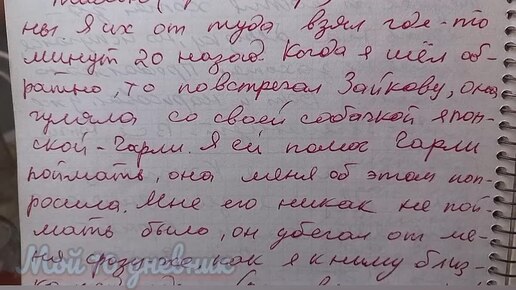 ны. Я их от туда взял где-то
минут 20 назад. Когда я шёл об-
ратно, то повстречал Зайкову, она
гуляла со своей собачкой япон-
ской - Чарли. Я ей помог Чарли
поймать, она меня об этом поп-
росила. Мне его никак не пой-
мать было, он убегал от ме-
ня сразу же как я к нему близ-
Мой дневник